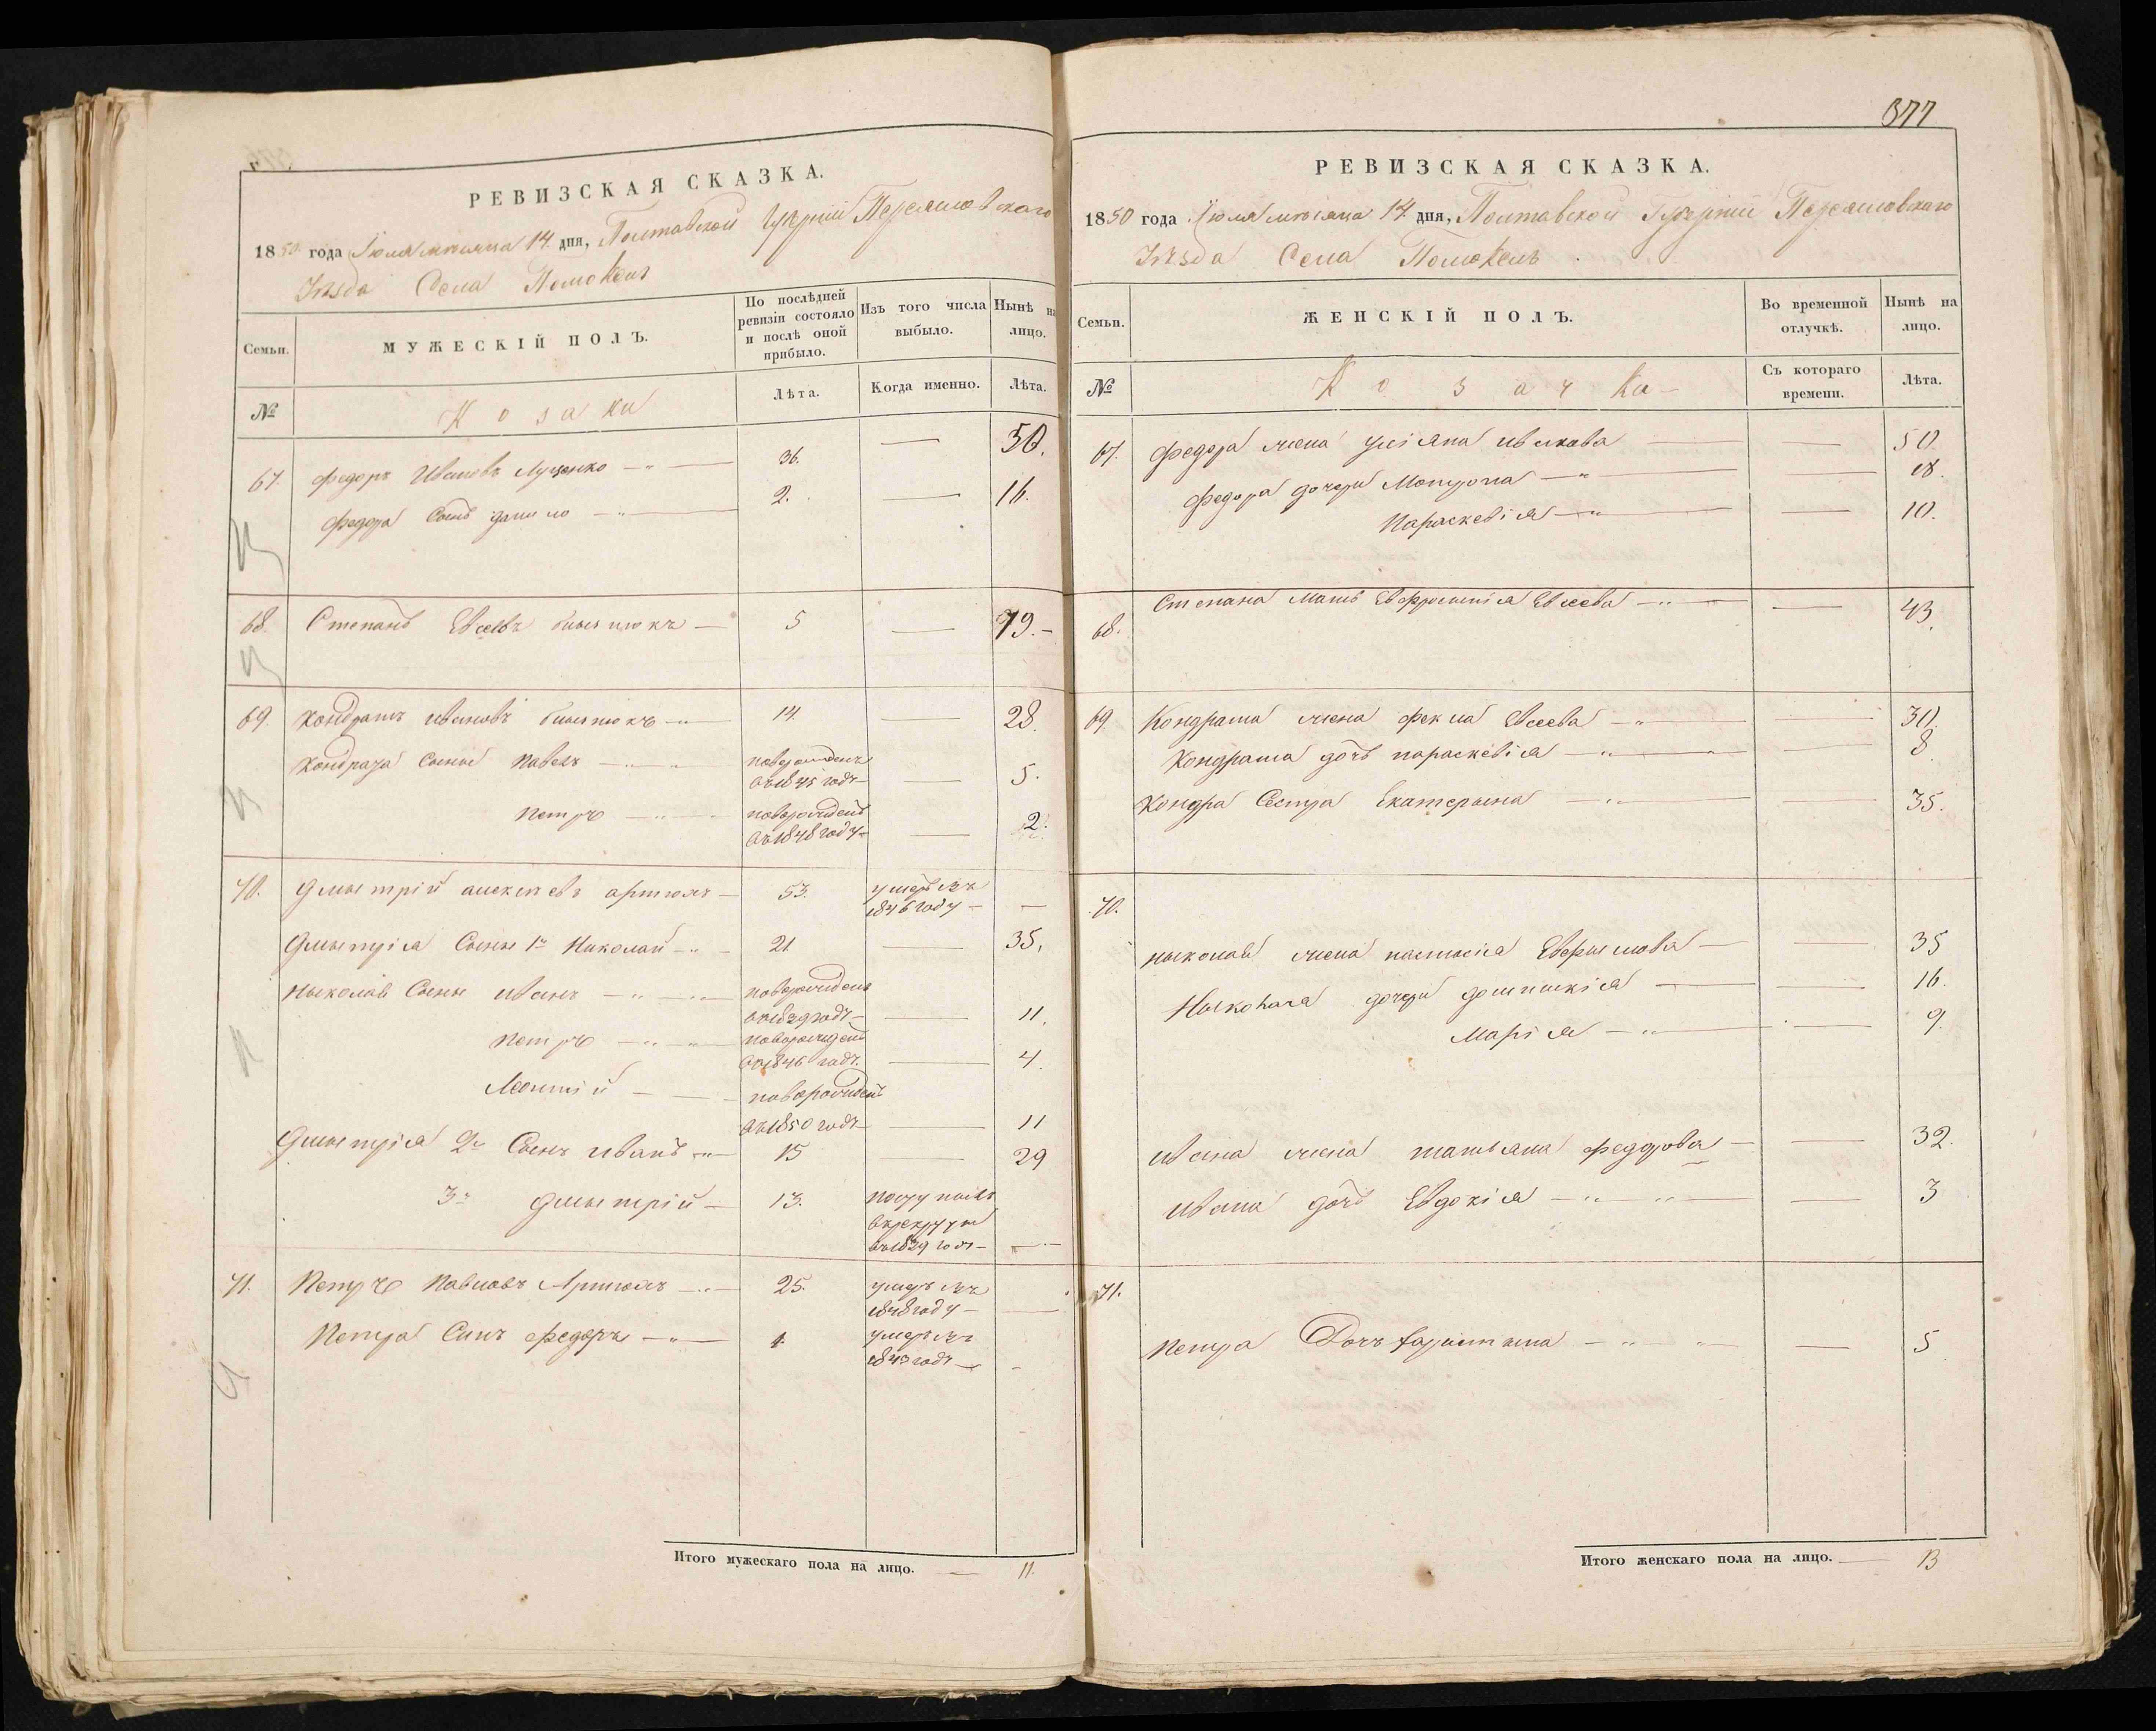 377
РЕВИЗСКАЯ СКАЗКА.
1850 года Іюля мѣсяца 14 дня, Полтавской Губерніи Переяславскаго
Уѣзда Села Помоклъ
Семьи.
МУЖЕСКІЙ ПОЛЪ.
По послѣдней ревизіи состояло и послѣ оной прибыло.
Изъ того числа выбыло.
Нынѣ на лицо.
№
Козаки
Лѣта.
Когда именно.
Лѣта.
67. Федоръ Ивановъ Луценко 36. — 50.
Федора Сынъ данило 2. — 16.
68. Степанъ Евсеевъ 5 — 19.
69. Кондратъ Ивановъ 14. — 28.
Кондрата Сыны Павелъ новорожденъ
въ 1845 годъ — 5.
Петръ новорожденъ
въ 1848 году — 2.
70. Дмытрій алексѣевъ артюхъ 53. умеръ въ
1846 году —
Дмытрія Сыны 1й Николай 21 — 35.
Ныколая Сыны иванъ новорожденъ
— 11.
Петръ новорожденъ
въ 1846 годъ — 4.
Леонтій новорожденъ
въ 1850 годъ — 11
Дмытрія 2й Сынъ иванъ 15 — 29
3й Дмытрій 13. поступилъ
в рекруты
71. Петръ Павловъ Артюхъ 25. умеръ въ
1848 году —
Петра Синъ федоръ 1. умеръ въ
1843 годъ —
Итого мужескаго пола на лицо. — 11.
РЕВИЗСКАЯ СКАЗКА.
1850 года Іюля мѣсяца 14 дня, Полтавской Губерніи Переяславскаго
Уѣзда Села Помоклъ
Семьи.
ЖЕНСКІЙ ПОЛЪ.
Во временной отлучкѣ.
Нынѣ на лицо.
№
Козачки
Съ котораго времени.
Лѣта.
67. Федора жена уліяна — 50.
Федора дочери Мотрона — 18.
Параскевія — 10.
68. Степана мать Евфросинія Евсеева — 43.
69. Кондрата жена фекла Евсеева — 30.
Кондрата дочь параскевія — 8
Кондра Сестра Екатерына — 35.
70.
ныколая жена настасія — 35
Ныколая дочери — 16.
Марія — 9.
Ивана жена татьяна федорова — 32.
Ивана дочь Евдокія — 3
71.
Петра Дочъ — 5
Итого женскаго пола на лицо. — 13